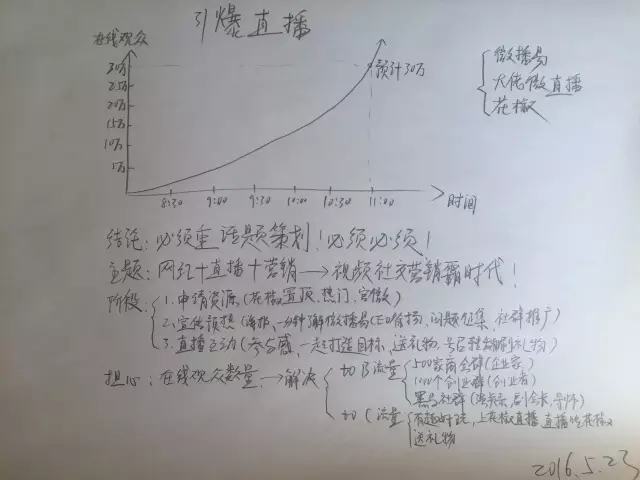 引爆直播
在线观众
30万
25万
20万
15万
10万
5万
预计30万
8:30 9:00 9:30 10:00 10:30 11:00
时间
微播易
大佬微直播
花椒
结论:必须重话题策划!必须必须!
主题:网红+直播+营销→视频社交营销霸时代!
阶段:1.申请资源(花椒置顶、热门、官微)
2.宣传预热(海报、一分钟了解微播易(ED伯扬)、问题征集、社群推广
3.直播互动(参与感,一起打造目标,送礼物,号召
担心:在线观众数量→解决
切B流量
500家商会群(企业家)
1000个创业群(创业者)
黑马社群(
切C流量
有趣好玩,上花椒直播
送礼物
2016.5.23